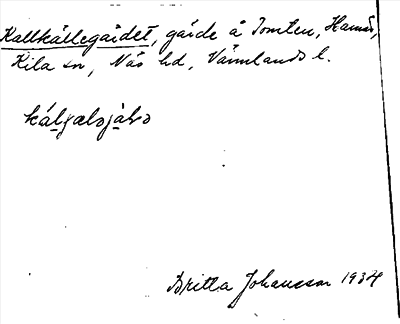 Kallkällegärdet, gärde å Tomten, Hamar,
Kila sn, Näs hd, Värmlands l.
Britta Johansson 1934